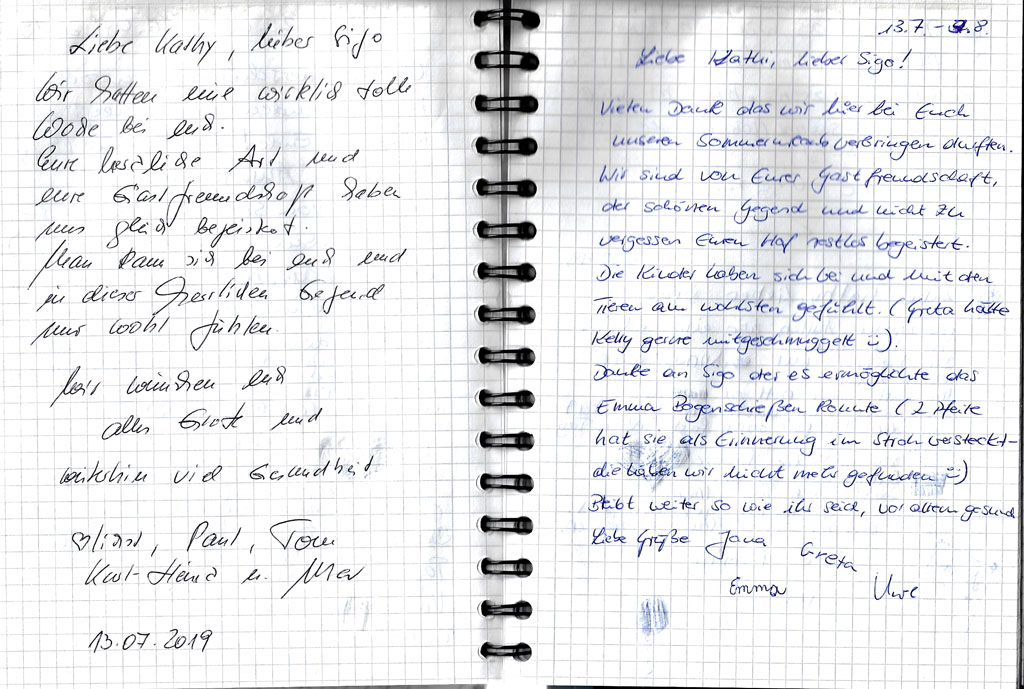 Liebe Kathy, lieber Sigo
Wir hatten eine wirklich tolle
Woche bei euch.
Eure herzliche Art und
eure Gastfreundschaft haben
uns gleich begeistert.
Man kann sich bei euch und
in dieser herrlichen Gegend
nur wohl fühlen.
Wir wünschen euch
alles Gute und
weiterhin viel Gesundheit
Paul, Tom
Karl-Heinz u.
13.07.2019
13.7. - 8.
Liebe Kathi, lieber Sigo!
Vielen Dank das wir hier bei Euch
unseren Sommerurlaub verbringen durften.
Wir sind von Eurer Gastfreundschaft,
der schönen Gegend und nicht zu
vergessen Euren Hof restlos begeistert.
Die Kinder haben sich bei und mit den
Tieren am wohlsten gefühlt. (Greta hätte
Kelly gerne mitgeschmuggelt :)).
Danke an Sigo der es ermöglichte das
Emma Bogenschießen konnte (2 Pfeile
hat sie als Erinnerung im Stroh versteckt -
die haben wir nicht mehr gefunden :))
Bleibt weiter so wie ihr seid, vor allem gesund
Liebe Grüße Jana Greta
Emma Uwe